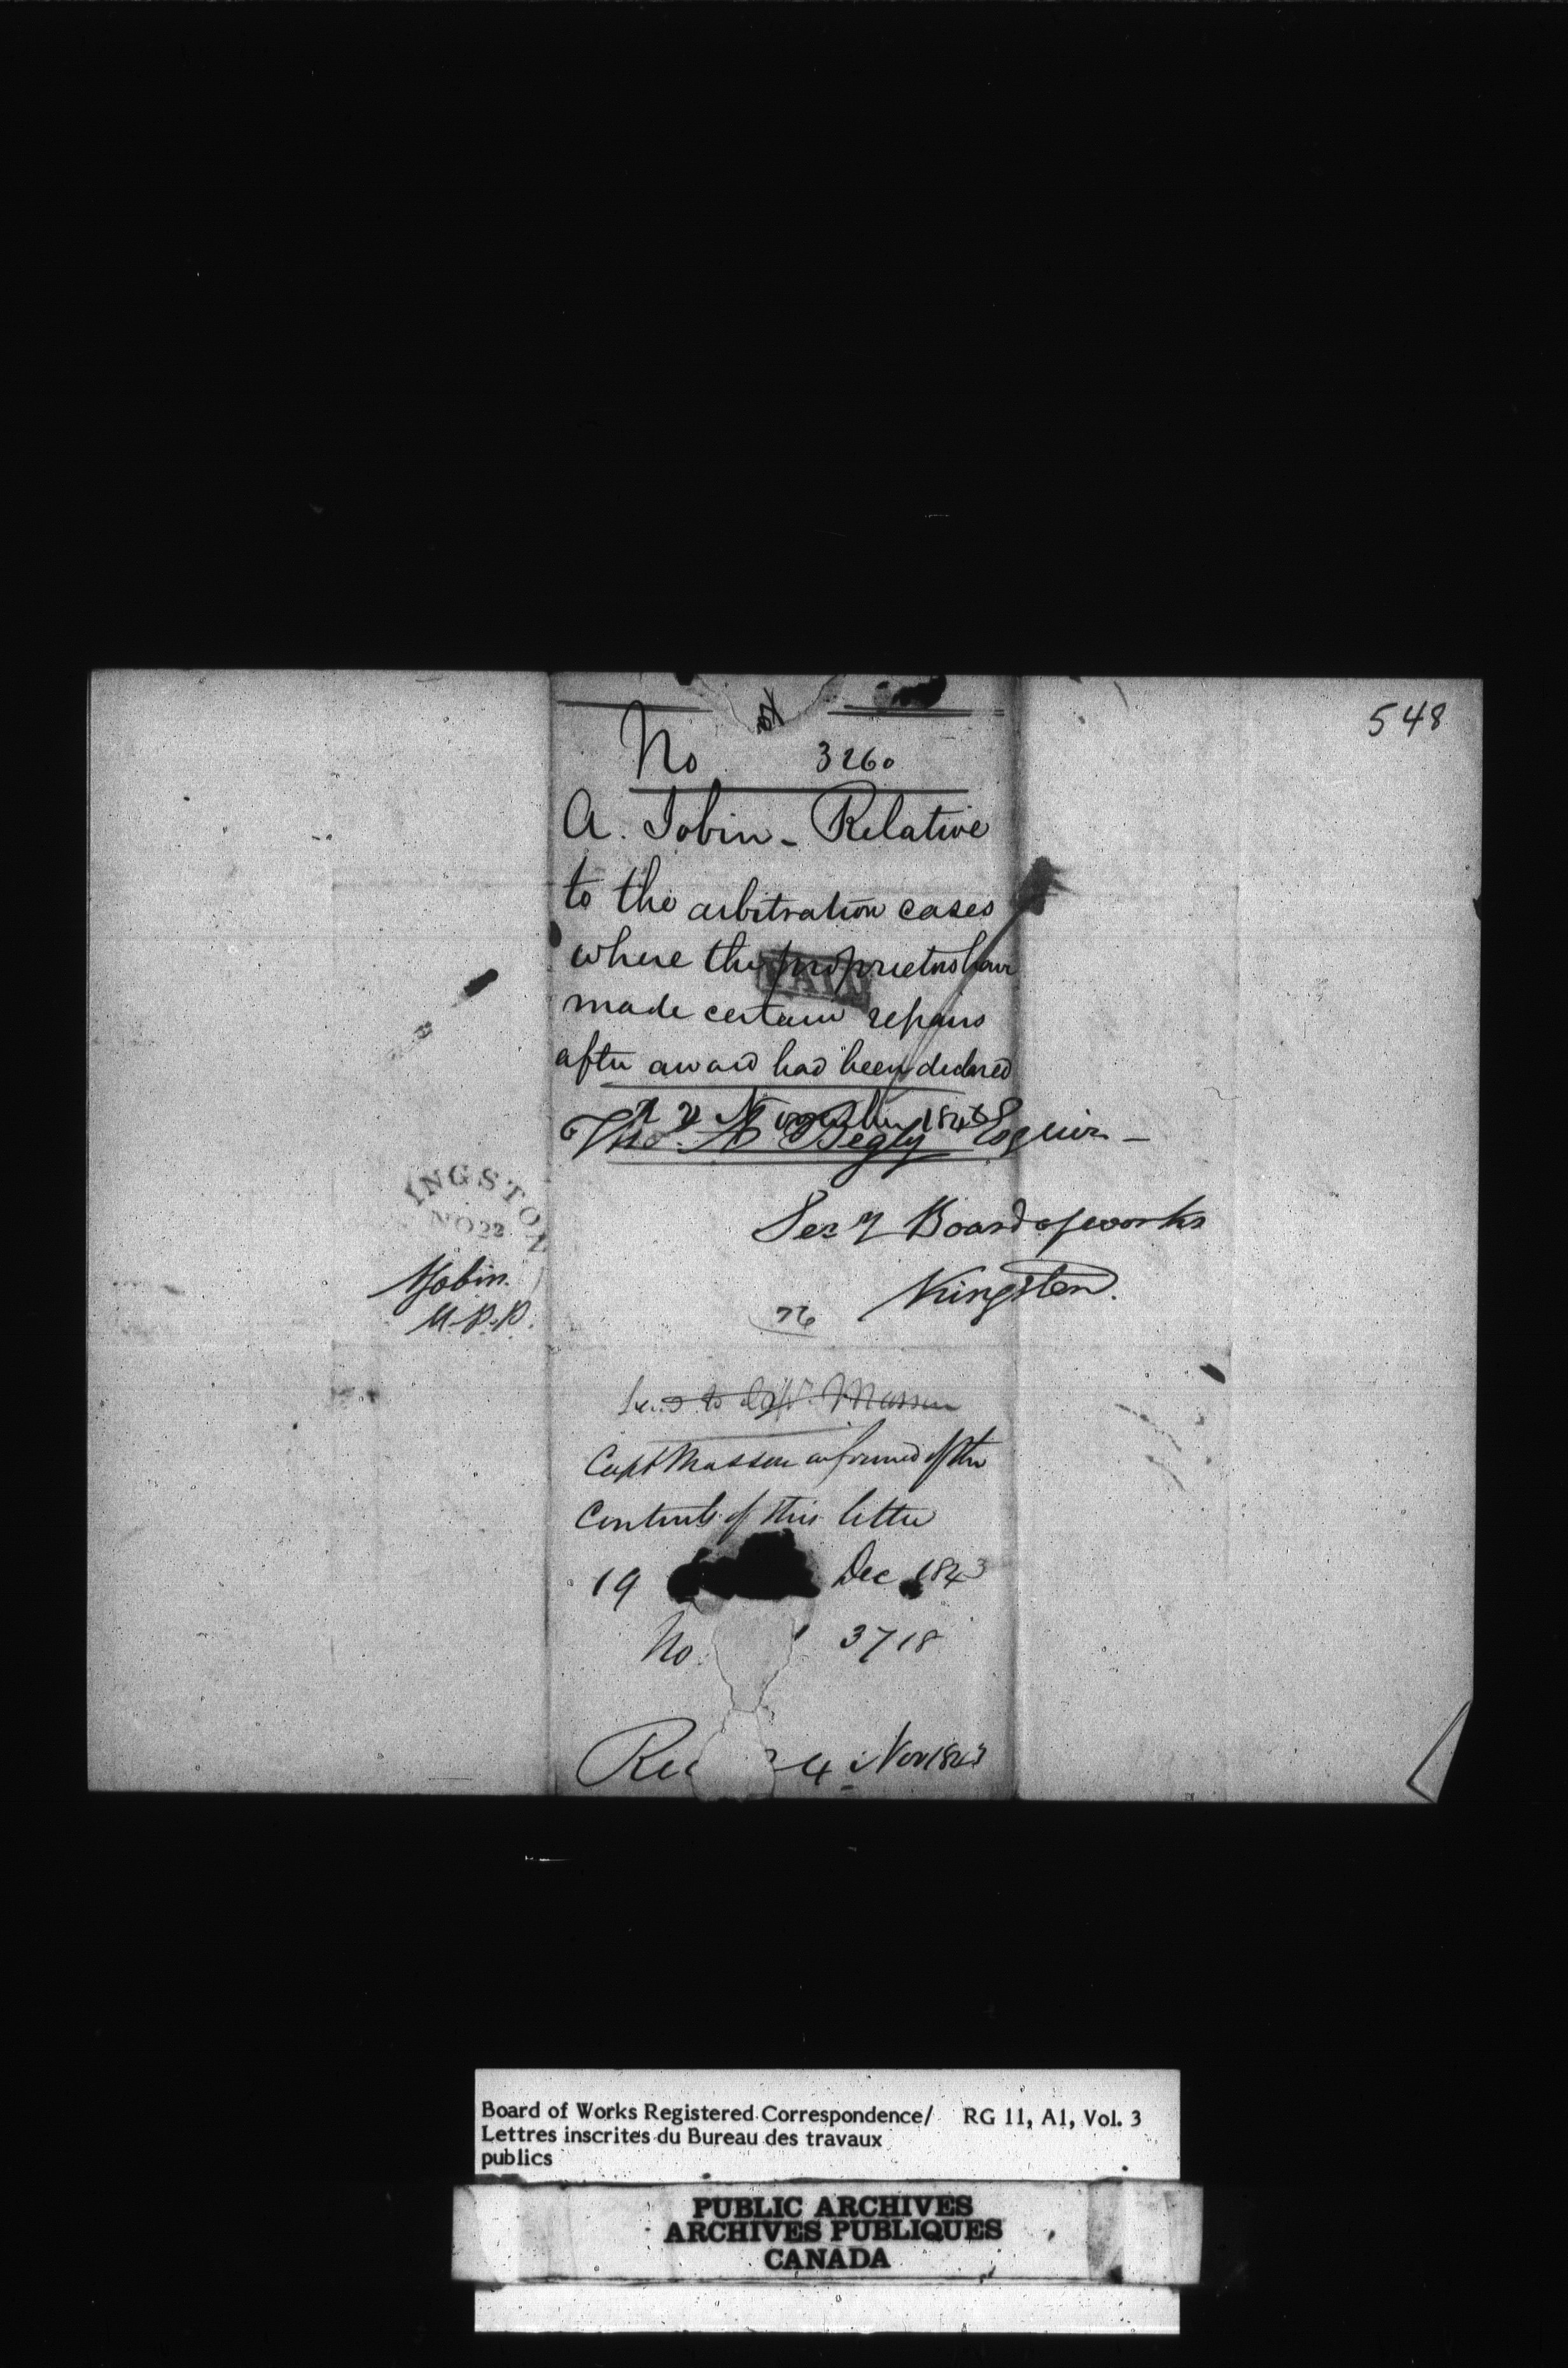 548
No 3260
A. Jobin - Relative
to the arbitration cases
where the proprietors have
made certain repairs
after award had been declared
November 184
Thos. A Begly Esquire -
Secy Board of works
Kingston.
76
INGSTON
NO 22
AJobin.
M.P.P.
PAID
Send to Capt. Masson
Capt Masson informed of the
Contents of this letter
19 Dec 1843
No. 3718
Rec 24 Nov 1843
Board of Works Registered Correspondence/ RG 11, A1, Vol. 3
Lettres inscrites du Bureau des travaux
publics
PUBLIC ARCHIVES
ARCHIVES PUBLIQUES
CANADA